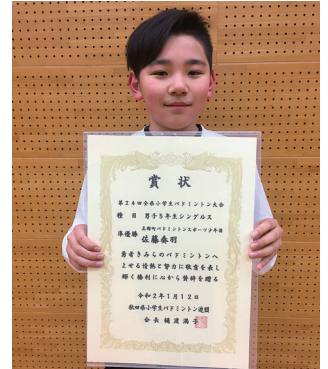 賞状
第24回全県小学生バドミントン大会
種目 男子5年生シングルス
美郷町バドミントンスポーツ少年団
準優勝
佐藤奏羽
勇者きみらのバドミントンへ
よせる情熱と努力に敬意を表し
輝く勝利に心から賛辞を贈る
令和2年1月12日
秋田県小学生バドミントン連盟
会長 樋渡満子